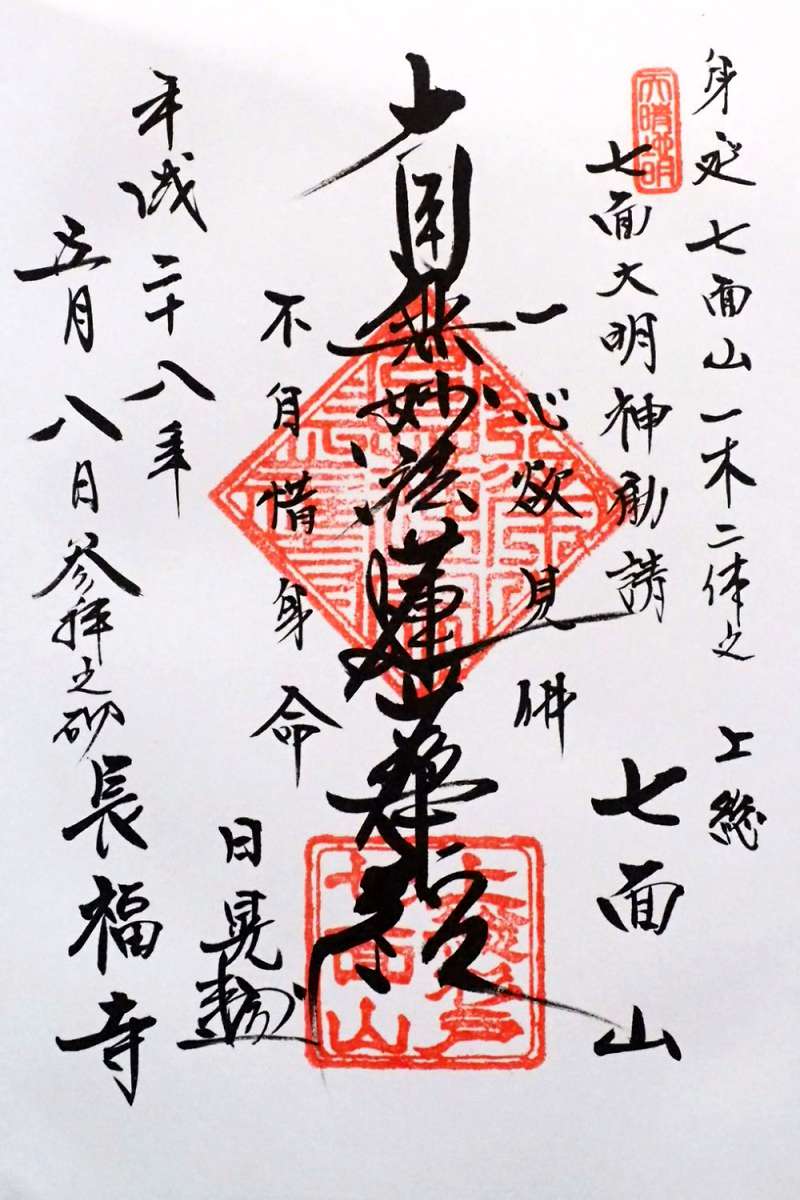 身延七面山一木二体之 上総
天晴地明
七面大明神勧請
七面山
一心欲見佛
南無妙法蓮華経
不自惜身命
日晃
七面山
平成二十八年
五月八日参拝之砌
長福寺